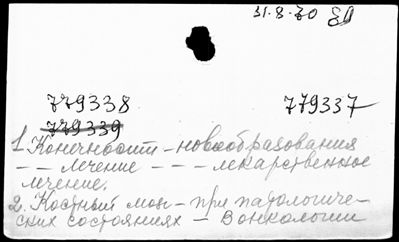 31.8.70
779338 779337
779339
1. Конечности – новообразования
– – лечение – – – лекарственное
лечение.
2. Костный мозг – при патологиче-
ских состояниях – в онкологии